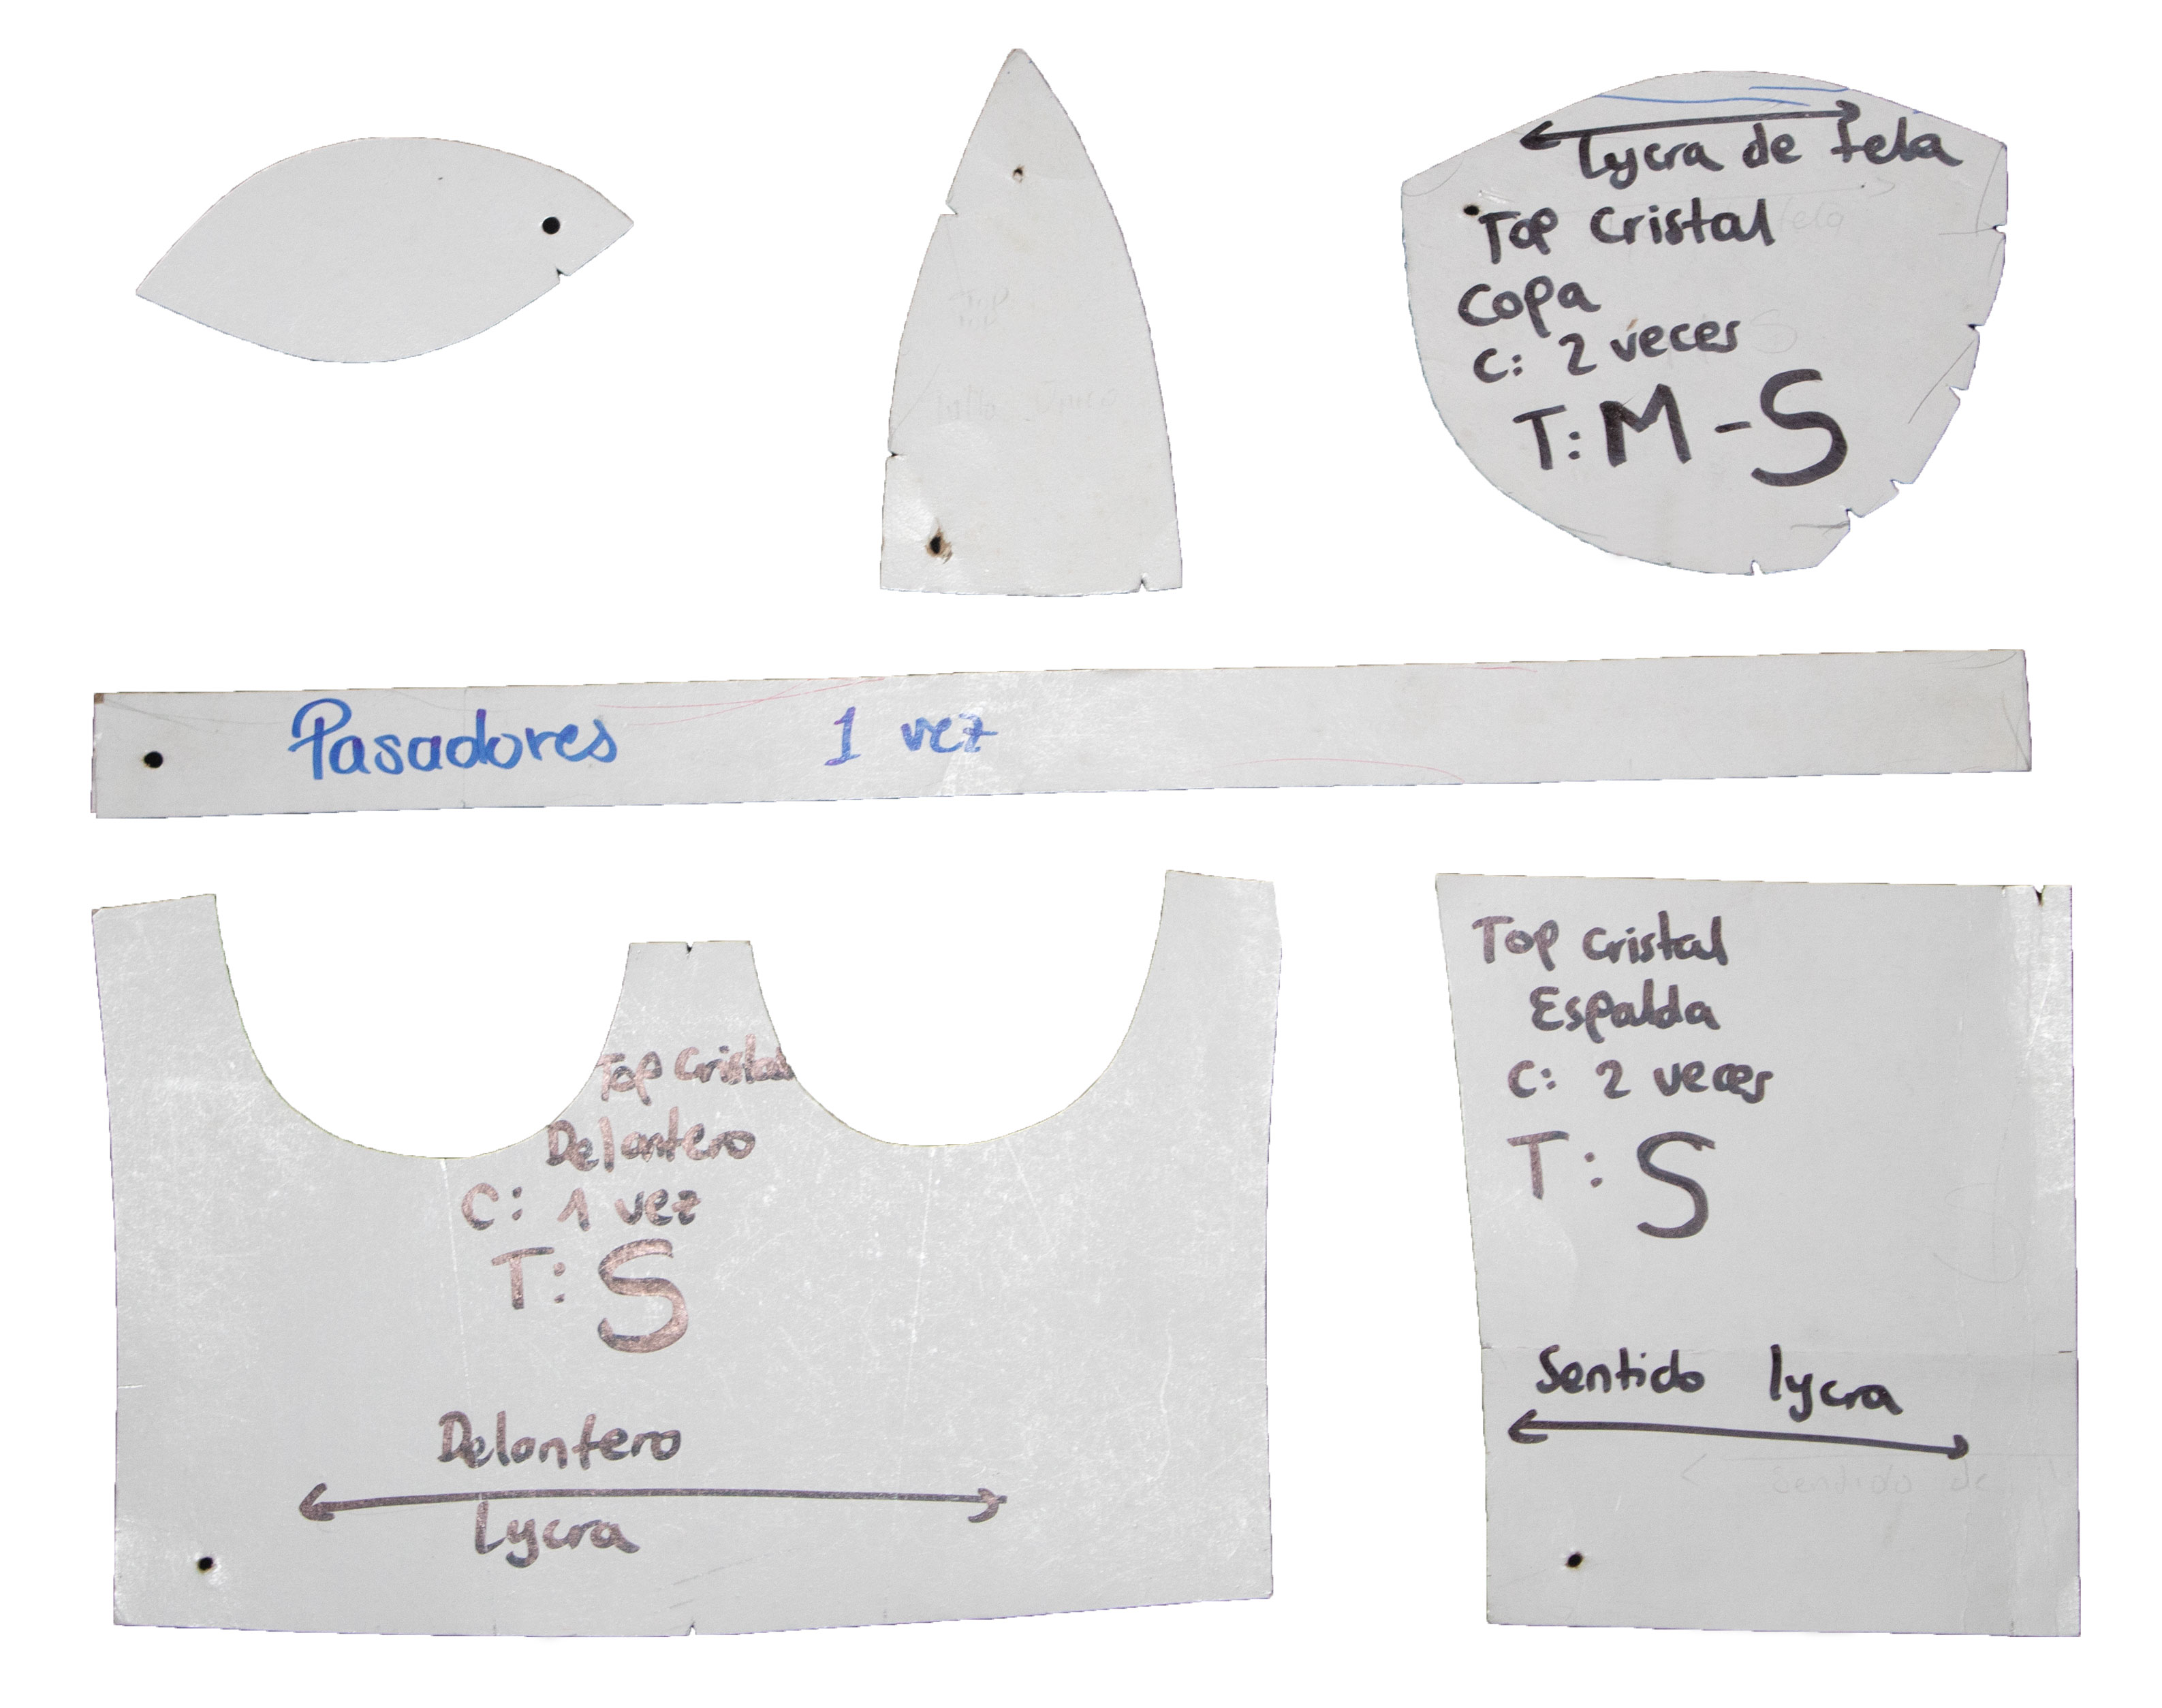 Lycra de tela
Top Cristal
Copa
C: 2 veces
T: M-S
Pasadores 1 vez
Top Cristal
Delantero
C: 1 vez
T: S
Delantero
Lycra
Top Cristal
Espalda
C: 2 veces
T: S
Sentido lycra
Sentido de